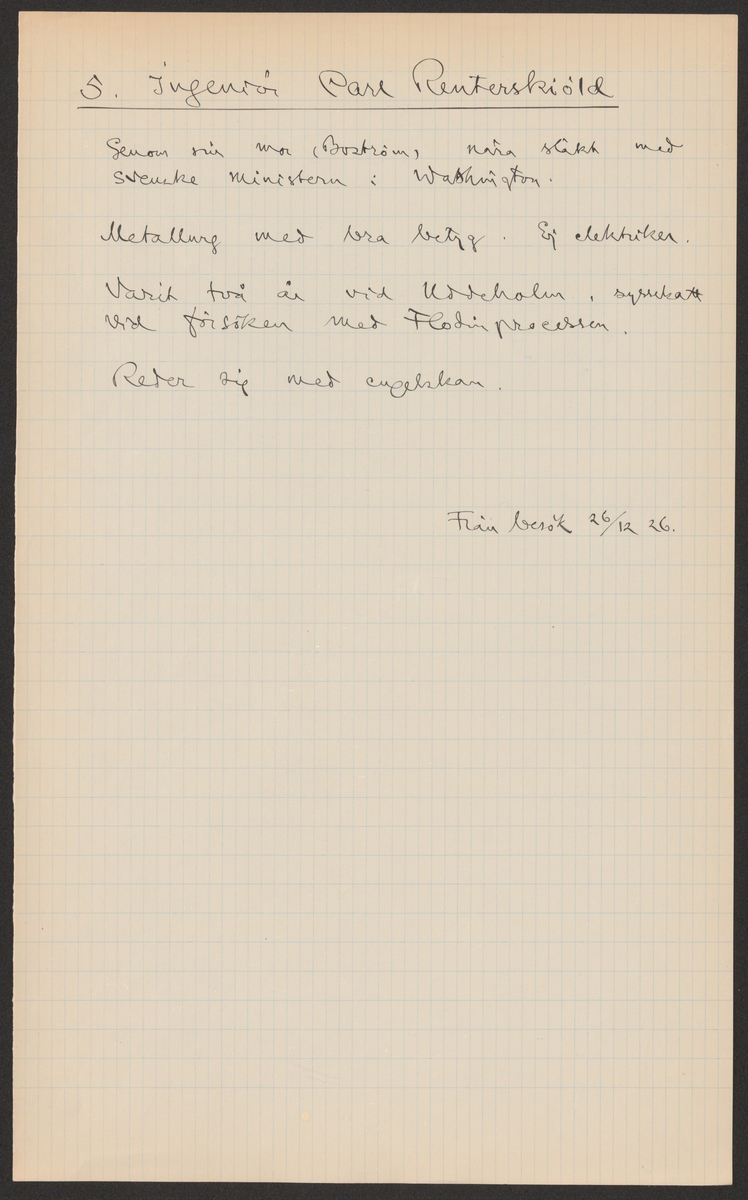 5. Ingeniör Carl Reuterskiöld
Genom sin mor (Boström) nära släkt med
svenske ministern i Washington.
Metallurg med bra betyg. Ej elektriker.
Varit två år vid Uddeholm, sysselsatt
vid försöken med Flodinprocessen.
Reder sig med engelskan.
Från besök 26/12 26.